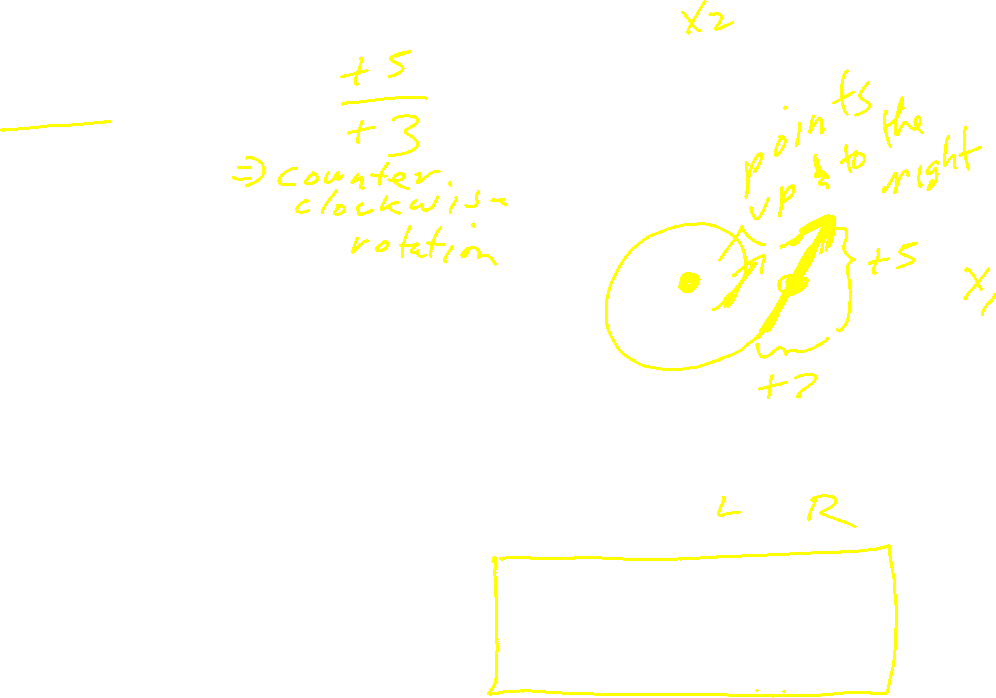 X2
+5
+3
⇒ counter
clockwise
rotation
points
up & to the
right
+5
X1
+?
L R